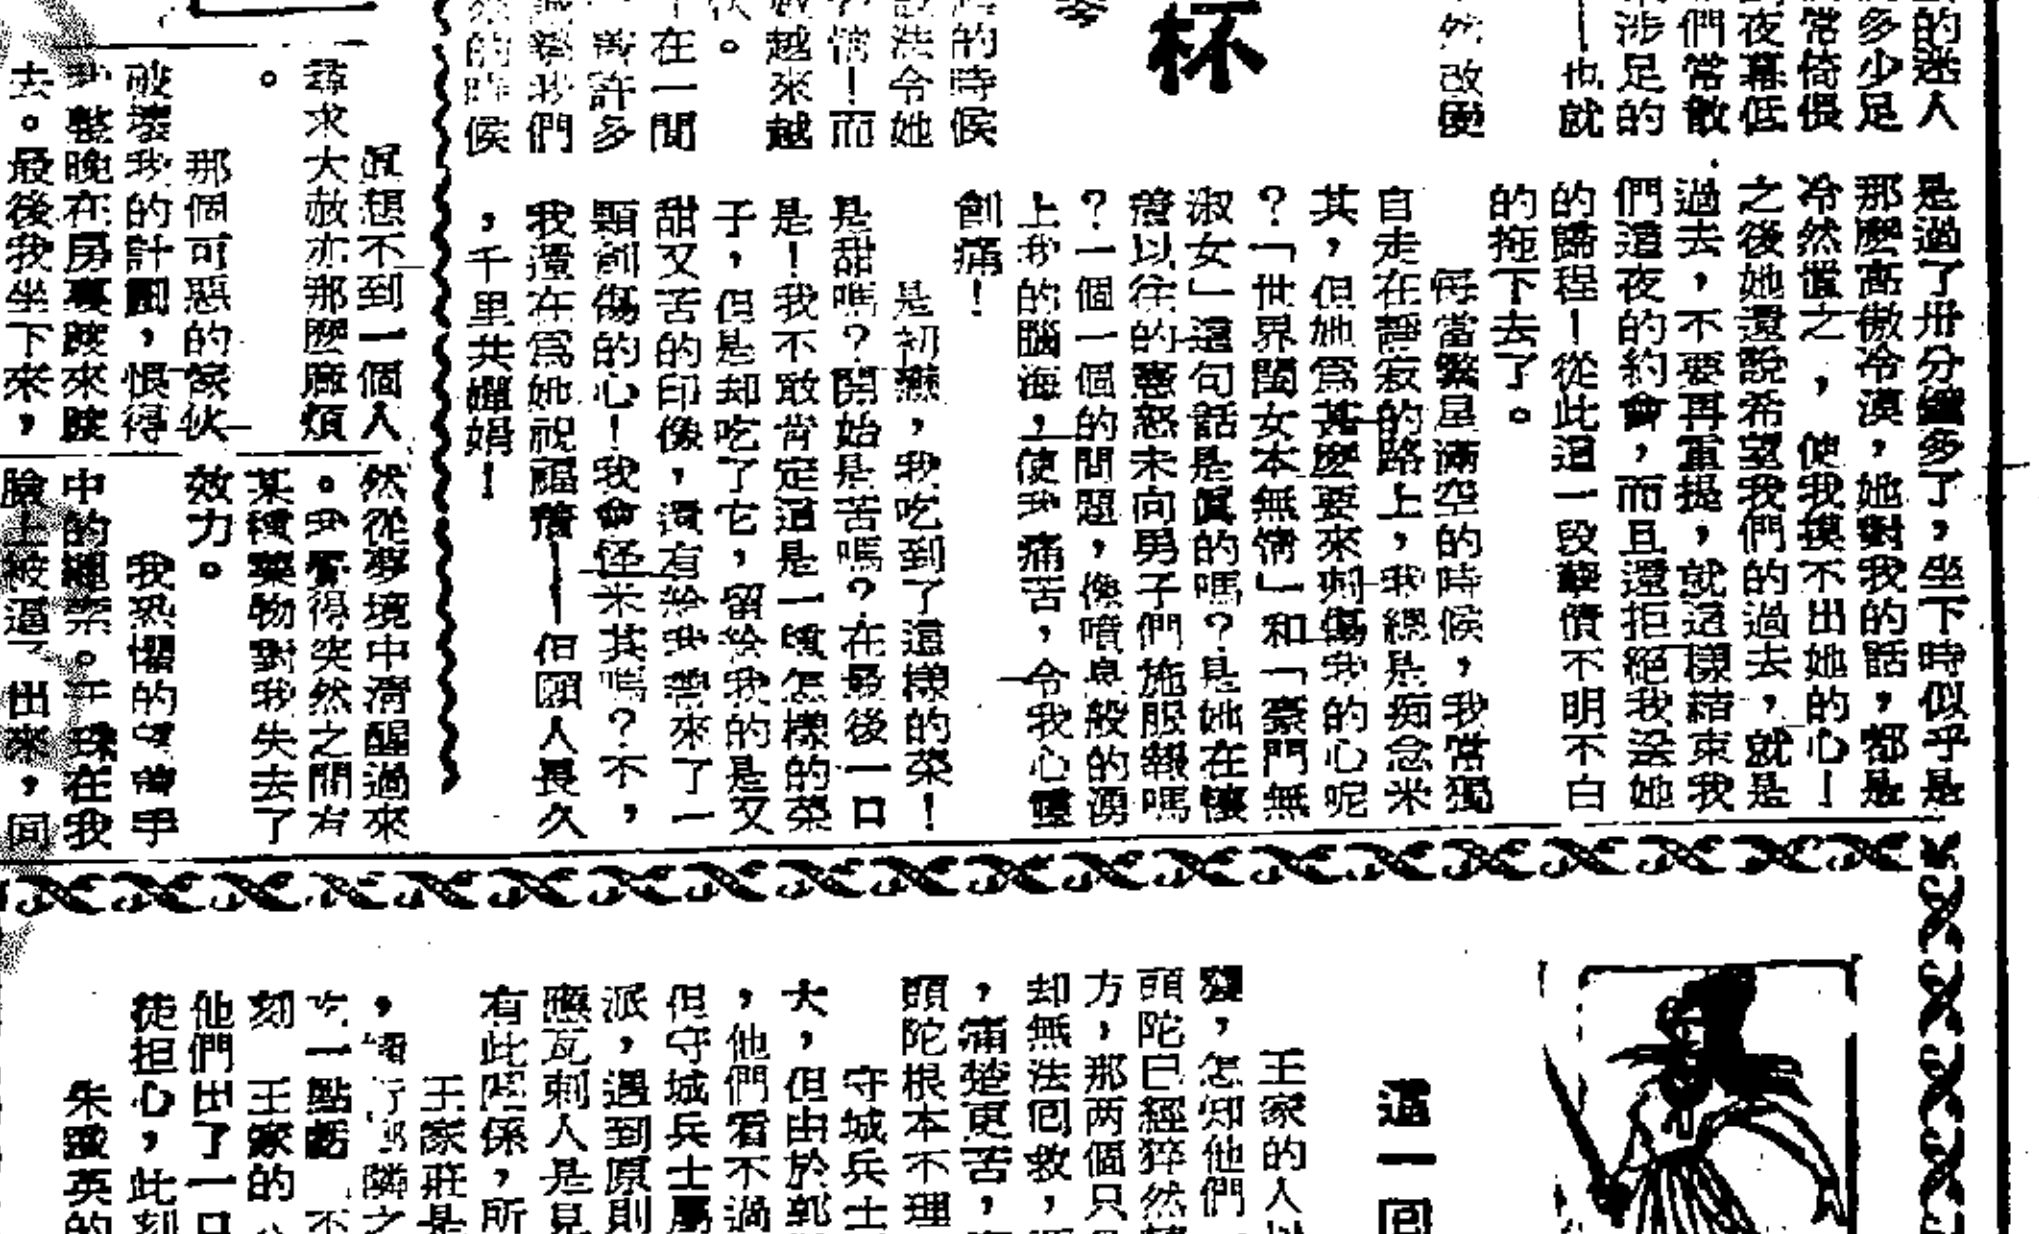 的迷人
多少足
常倚偎
夜幕低
們常散
涉足的
—也就
然改變
杯
的時候
法令她
情！而
越來越
。
在一間
許多
我們
的時候
是過了卅分鐘多了，坐下時似乎是
那麼高傲冷漠，她對我的話，都是
冷然置之，使我摸不出她的心！
之後她還說希望我們的過去，就是
過去，不要再重提，就這樣結束我
們這夜的約會，而且還拒絕我送她
的歸程！從此這一段孽債不明不白
的拖下去了。
每當繁星滿空的時候，我常獨
自走在靜寂的路上，我總是痴念米
其，但她爲甚麼要來刺傷我的心呢
？「世界閨女本無情」和「豪門無
淑女」這句話是眞的嗎？是她在懷
着以往的憲怒未向男子們施服報嗎
？一個一個的問題，像噴泉般的湧
上我的腦海，使我痛苦，令我心靈
創痛！
是初戀，我吃到了這樣的菜！
是甜嗎？開始是苦嗎？在最後一口
是！我不敢肯定這是一塊怎樣的菜
子，但是却吃了它，留給我的是又
甜又苦的印像，還有給我帶來了一
顆創傷的心！我會怪米其嗎？不，
我還在爲她祝福着——但願人長久
，千里共嬋娟！
眞想不到一個人
尋求大赦亦那麼麻煩
。
那個可惡的傢伙
破壞我的計劃，恨得
我整晚在房裏踱來踱
去。最後我坐下來，
然從夢境中清醒過來
。我覺得突然之間有
某種藥物對我失去了
效力。
我恐懼的望着手
中的繩索。在我
臉上被逼出來，回
這一回
王家的人
，怎知他們
頭陀已經猝然
方，那两個只
却無法回救，
，痛楚更苦，
頭陀根本不理
守城兵士
大，但由於郭
，他們看不過
但守城兵士屬
派，遇到原則
應瓦刺人是見
有此關係，所
王家莊是
，隣之
吃一點虧 不
刻 王家的
他們出了一口
徒担心，此刻
朱英的